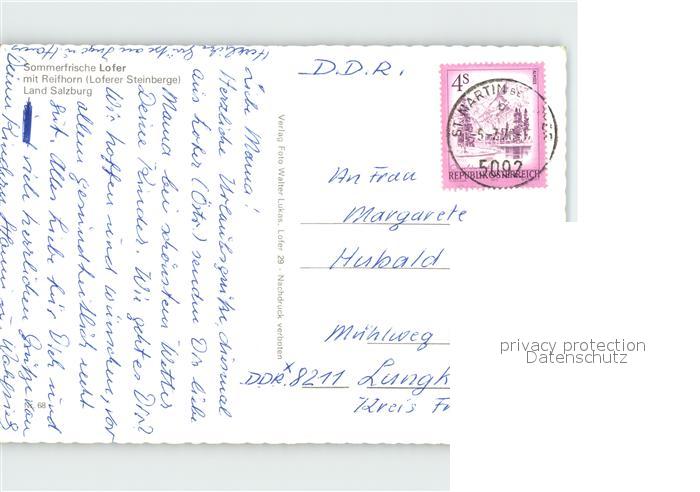 Sommerfrische Lofer
mit Reifhorn (Loferer Steinberge)
Land Salzburg
Liebe Mama!
Herzliche Urlaubsgrüße, diesmal
aus Lofer (Östr.) senden Dir liebe
Mama bei schönstem Wetter
Deine Kinder. Wie geht es Dir?
Wir hoffen und wünschen, vor
allem gesundheitlich recht
gut. Alles Liebe für Dich und
viele herzlichen Grüße von
Deinen Kindern
Herzliche Grüße an
68
Verlag Foto Walter Lukas, Lofer 29 - Nachdruck verboten
D.D.R.
4S
REPUBLIK ÖSTERREICH
ST. MARTIN BEI
5092
An Frau
Margarete
Hubald
Mühlweg
DDR 8211 Lungk
Kreis Fr
privacy protection
Datenschutz